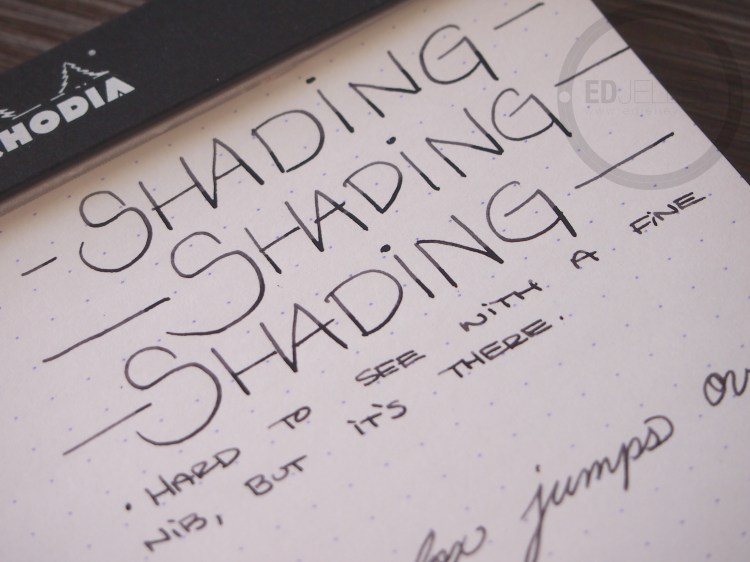 RHODIA
EDJELLEY
- SHADiNG -
- SHADiNG -
- SHADiNG -
• HARD TO SEE WiTH A FiNE
NiB, BUT iT'S THERE.
fox jumps ov